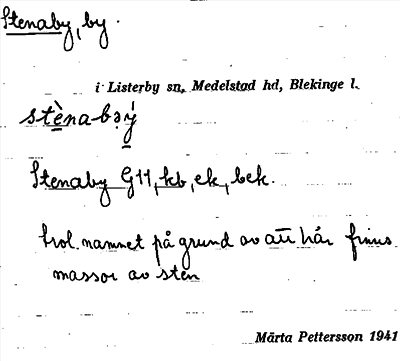 Stenaby, by.
i Listerby sn, Medelstad hd, Blekinge l.
stè̱na-bə̣ý̱
Stenaby G11, kb, ek, bek.
trol. namnet på grund av att här finns
massor av sten
Märta Pettersson 1941